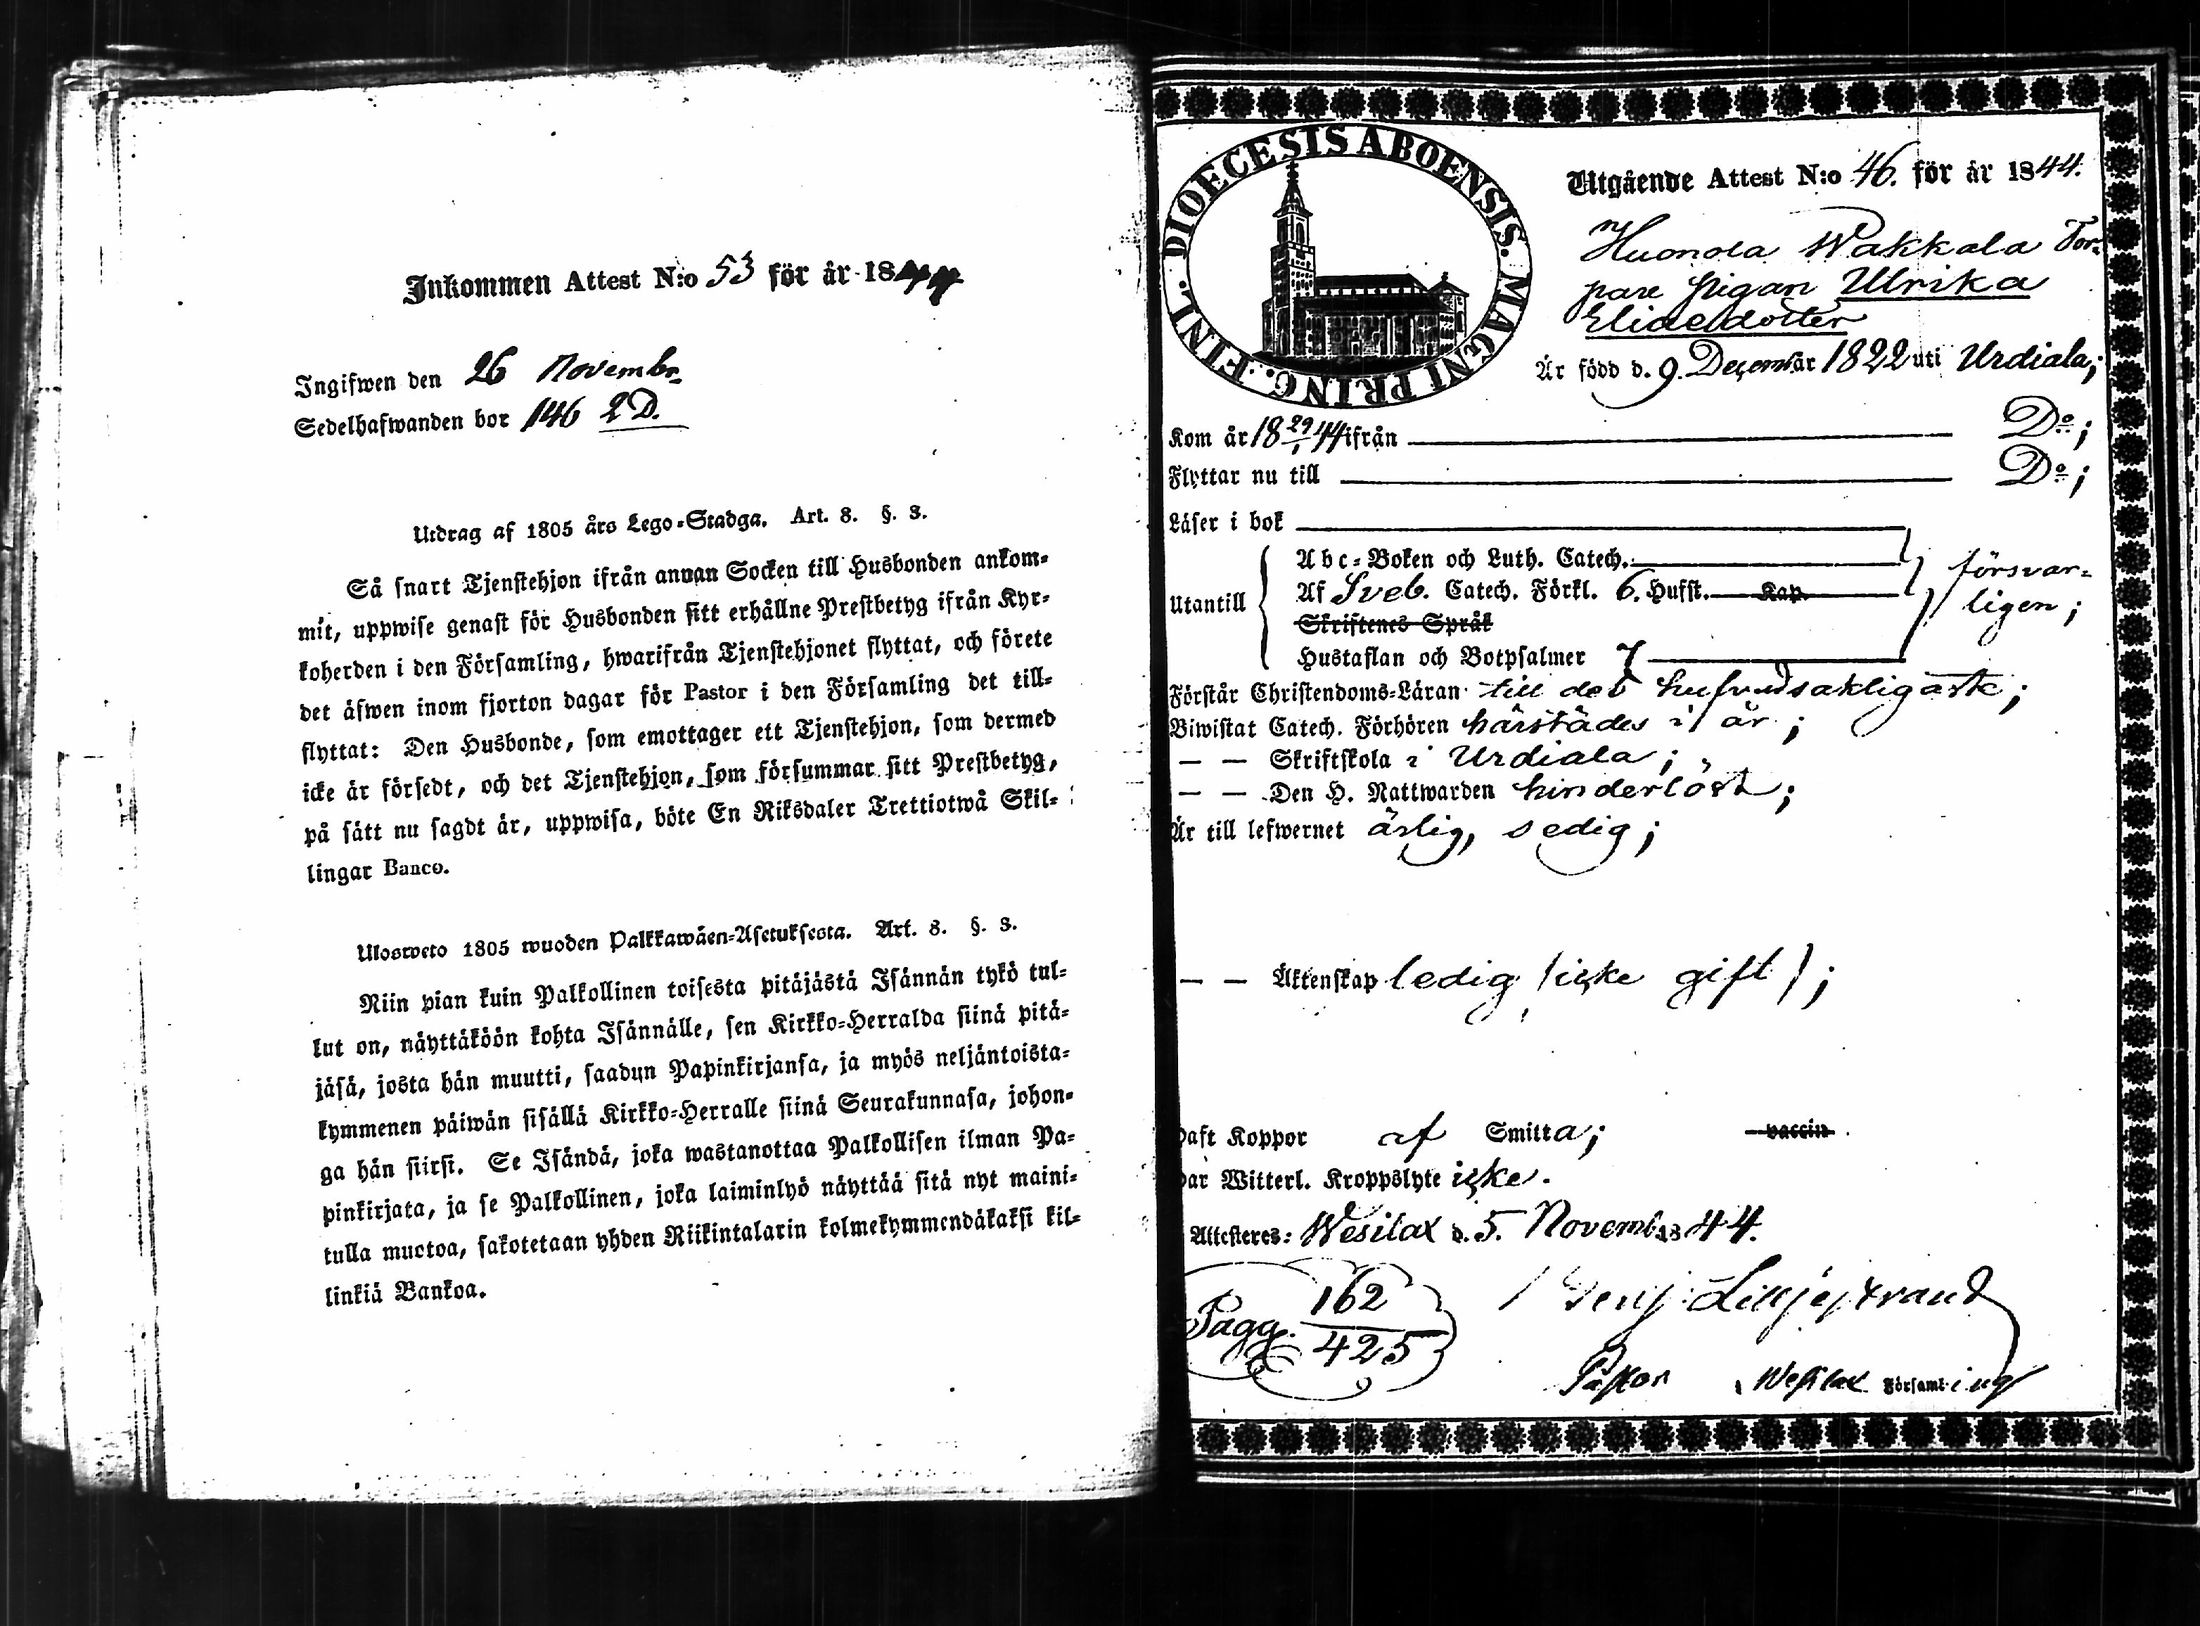 Inkommen Attest N:o 53 för år 1844
Ingifwen den 26 Novembr.
Sedelhafwanden bor 146 2 D.
Utdrag af 1805 års Lego-Stadga. Art. 8. §. 3.
Så snart Tjenstehjon ifrån annan Socken till Husbonden ankom-
mit, uppwise genast för Husbonden sitt erhållne Prestbetyg ifrån Kyr-
koherden i den Församling, hwarifrån Tjenstehjonet flyttat, och förete
det äfwen inom fjorton dagar för Pastor i den Församling det till-
flyttat: Den Husbonde, som emottager ett Tjenstehjon, som dermed
icke är försedt, och det Tjenstehjon, som försummar sitt Prestbetyg,
på sätt nu sagdt är, uppwisa, böte En Riksdaler Trettiotwå Skil-
lingar Banco.
Ulosweto 1805 wuoden Palkkawäen-Asetuksesta. Art. 8. §. 3.
Niin pian kuin Palkollinen toisesta pitäjästä Isännän tykö tul-
lut on, näyttäköön kohta Isännälle, sen Kirkko-Herralda siinä pitä-
jäsä, josta hän muutti, saadun Papinkirjansa, ja myös neljäntoista-
kymmenen päiwän sisällä Kirkko-Herralle siinä Seurakunnasa, johon-
ga hän siirsi. Se Isändä, joka wastanottaa Palkollisen ilman Pa-
pinkirjata, ja se Palkollinen, joka laiminlyö näyttää sitä nyt maini-
tulla muotoa, sakotetaan yhden Riikintalarin kolmekymmendäkaksi kil-
linkiä Bankoa.
DIOECESIS ABOENSIS. MAGNI PRINC. FINL.
Utgående Attest N:o 46. för år 1844.
Huonola Wakkala Tor-
pare pigan Ulrika
Eliædotter
Är född d. 9. Decembr år 1822 uti Urdiala;
Kom år 18 29/1 44 ifrån Do;
Flyttar nu till Do;
Läser i bok
Abc-Boken och Luth. Catech.
Utantill Af Sveb. Catech. Förkl. 6. Hufst. Kap. försvar-
Skriftenes Språk ligen;
Hustaflan och Botpsalmer 7
Förstår Christendoms-Läran till det hufvudsakligaste;
Biwistat Catech. Förhören härstädes i år;
— — Skriftskola i Urdiala;
— — Den H. Nattwarden hinderlöst;
Är till lefwernet ärlig, sedig;
— — Äktenskap ledig (icke gift);
haft Koppor af Smitta; vaccin.
har Witterl. Kroppslyte icke.
Attesteres: Wesilax d. 5. Novemb. 1844.
Pagg. 162/425
Benj. Lilljestrand
Pastor i Wesilax Församling